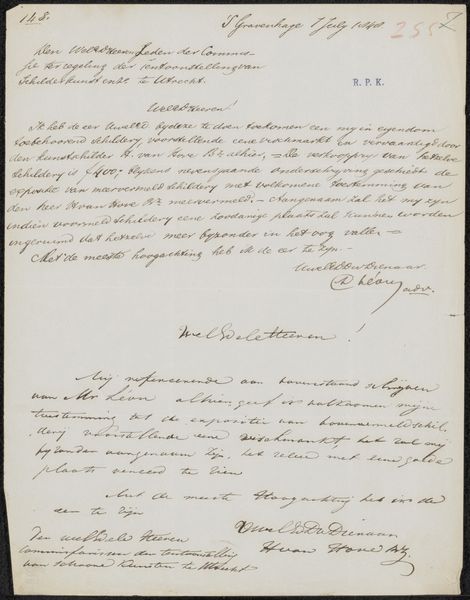 148.
S Gravenhage 7 July 1848
R. P. K.
Den WelEd Heeren Leden der Commis-
sie ter regeling der tentoonstelling van
Schilderkunst enz. te Utrecht.
WelEd Heeren!
Ik heb de eer UwelEd bydeze te doen toekomen een my in eigendom
toebehoorend schildery, voorstellende eene vischmarkt en vervaardigd door
den kunstschilder H. van Hove Bz alhier, = De verkoopprys van hetzelve
schildery is ƒ400,- blykens nevenstaande onderschryving geschiedt de
expositie van meervermeld schildery met volkomene toestemming van
den heer H van Hove Bz meervermeld. - Aangenaam zal het my zyn
indien voormeld schildery eene zoodanige plaats zal kunnen worden
ingeruimd dat hetzelve meer byzonder in het oog valle. =
Met de meeste hoogachting heb ik de eer te zyn. -
UwelEd Dw Dienaar
Levy
adv.
Wel Edele Heeren!
Mij refereerende aan bovenstaand schrijven
van Mr Leon alhier, geef ik volkomen mijne
toestemming tot de expositie van bovenvermeld schil-
derij voorstellende eene vischmarkt het zal mij
byzonder aangenaam zijn, het zelve met eene goede
plaats vereerd te zien
Met de meeste Hoogachting heb ik de
eer te zijn
UwelEd Dw Dienaar
H van Hove Bz
Den welEdele Heeren
commissarissen der tentoonstelling
van schoone kunsten te Utrecht